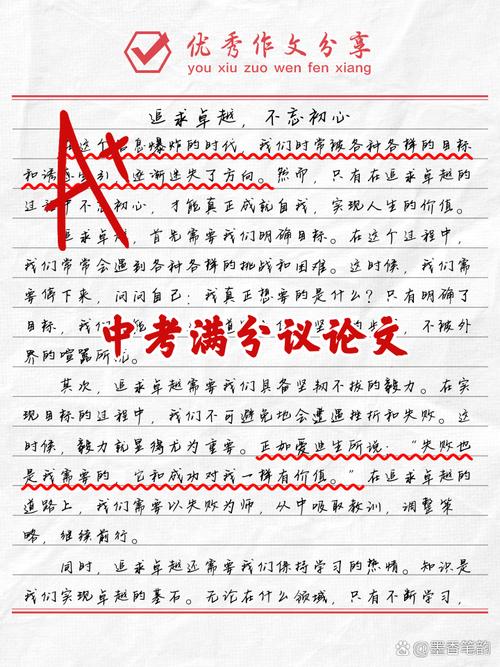 优秀作文分享
you xiu zuo wen fen xiang
追求卓越，不忘初心
这个 息爆炸的时代，我们时常被各种各样的目标
和诱 逐渐迷失了方向。然而，只有在追求卓越的
过 中不忘初心，才能真正成就自我，实现人生的价值。
追求卓越，首先需要我们明确目标。在这个过程中，
我们常常会遇到各种各样的挑战和困难。这时候，我们需
要停下来，问问自己：我真正想要的是什么？只有明确了
目标，我们 能 道 坚 的 ，不被外
界的喧嚣所
中考满分议论文
其次，追求卓越需要我们具备坚韧不拔的毅力。在实
现目标的过程中，我们不可避免地会遭遇挫折和失败。这
时候，毅力就显得尤为重要。正如爱迪生所说：“失败也
是我需要的，它和成功对我一样有价值。”在追求卓越的
道路上，我们需要以失败为师，从中吸取教训，调整策
略，继续前行。
同时，追求卓越还需要我们保持学习的热情。知识是
我们实现卓越的基石。无论在什么领域，只有不断学习，
A+
百家号@墨香笔韵